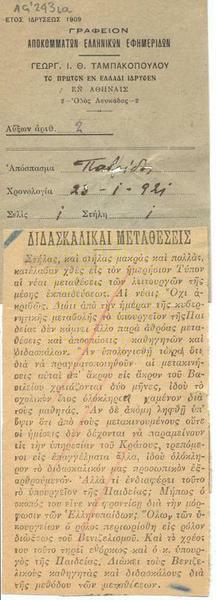 AG 293ια
ΕΤΟΣ ΙΔΡΥΣΕΩΣ 1909
ΓΡΑΦΕΙΟΝ
ΑΠΟΚΟΜΜΑΤΩΝ ΕΛΛΗΝΙΚΩΝ ΕΦΗΜΕΡΙΔΩΝ
ΓΕΩΡΓ. Ι. Θ. ΤΑΜΠΑΚΟΠΟΥΛΟΥ
ΤΟ ΠΡΩΤΟΝ ΕΝ ΕΛΛΑΔΙ ΙΔΡΥΘΕΝ
ΕΝ ΑΘΗΝΑΙΣ
2—Ὁδὸς Λευκάδος—2
Αὔξων ἀριθ. 2
Ἀπόσπασμα Πατρίδος
Χρονολογία 23-1-921
Σελὶς 1 Στήλη 1
ΔΙΔΑΣΚΑΛΙΚΑΙ ΜΕΤΑΘΕΣΕΙΣ
Στήλας, καὶ στήλας μακρὰς καὶ πολλάς,
κατέλαβαν χθὲς εἰς τὸν ἡμερήσιον Τύπον
αἱ νέαι μεταθέσεις τῶν λειτουργῶν τῆς
μέσης ἐκπαιδεύσεως. Αἱ νέαι; Ὄχι ἀ-
κριβῶς. Διότι ἀπὸ τὴν ἡμέραν τῆς κυβερ-
νητικῆς μεταβολῆς τὸ ὑπουργεῖον τῆς Παι-
δείας δὲν κάμνει ἄλλο παρὰ ἀθρόας μεταθέ-
σεις καὶ ἀποσπάσεις καθηγητῶν καὶ
διδασκάλων. Ἂν ὑπολογισθῇ τώρα ὅτι
διὰ νὰ πραγματοποιηθοῦν αἱ μετακινή-
σεις αὐταὶ ἀπ' ἄκρου εἰς ἄκρον τοῦ Βα-
σιλείου χρειάζονται δύο μῆνες, ἰδοὺ τὸ σχο-
λικὸν ἔτος ὁλόκληρον χαμένον διὰ
τοὺς μαθητάς. Ἂν δὲ ἀκόμη ληφθῇ ὑπ'
ὄψιν ὅτι ἀπὸ τοὺς μετακινουμένους οὔτε
οἱ ἡμίσεις δὲν δέχονται νὰ παραμείνουν
εἰς τὴν ὑπηρεσίαν τοῦ Κράτους, τρεπόμε-
νοι εἰς ἐπαγγέλματα ἄλλα, ἰδοὺ ὁλόκλη-
ρον τὸ διδασκαλικόν μας προσωπικὸν ἐξ-
αρθρούμενον. Ἀλλὰ τί ἐνδιαφέρει τοῦτο
τὸ ὑπουργεῖον τῆς Παιδείας; Μήπως ὁ
σκοπός του εἶνε νὰ φροντίσῃ διὰ τὴν μόρ-
φωσιν τῶν Ἑλληνοπαίδων; Ὅλων τῶν ὑ-
πουργείων ὁ ρόλος περιωρίσθη εἰς ρόλον
διώξεως τοῦ Βενιζελισμοῦ. Καὶ τὸ χρέος
του τοῦτο τηρεῖ εὐόρκως καὶ ὁ κ. ὑπουρ-
γὸς τῆς Παιδείας. Διώκει τοὺς Βενιζε-
λικοὺς καθηγητὰς καὶ διδασκάλους διὰ
τῆς μεθόδου τῶν μεταθέσεων.